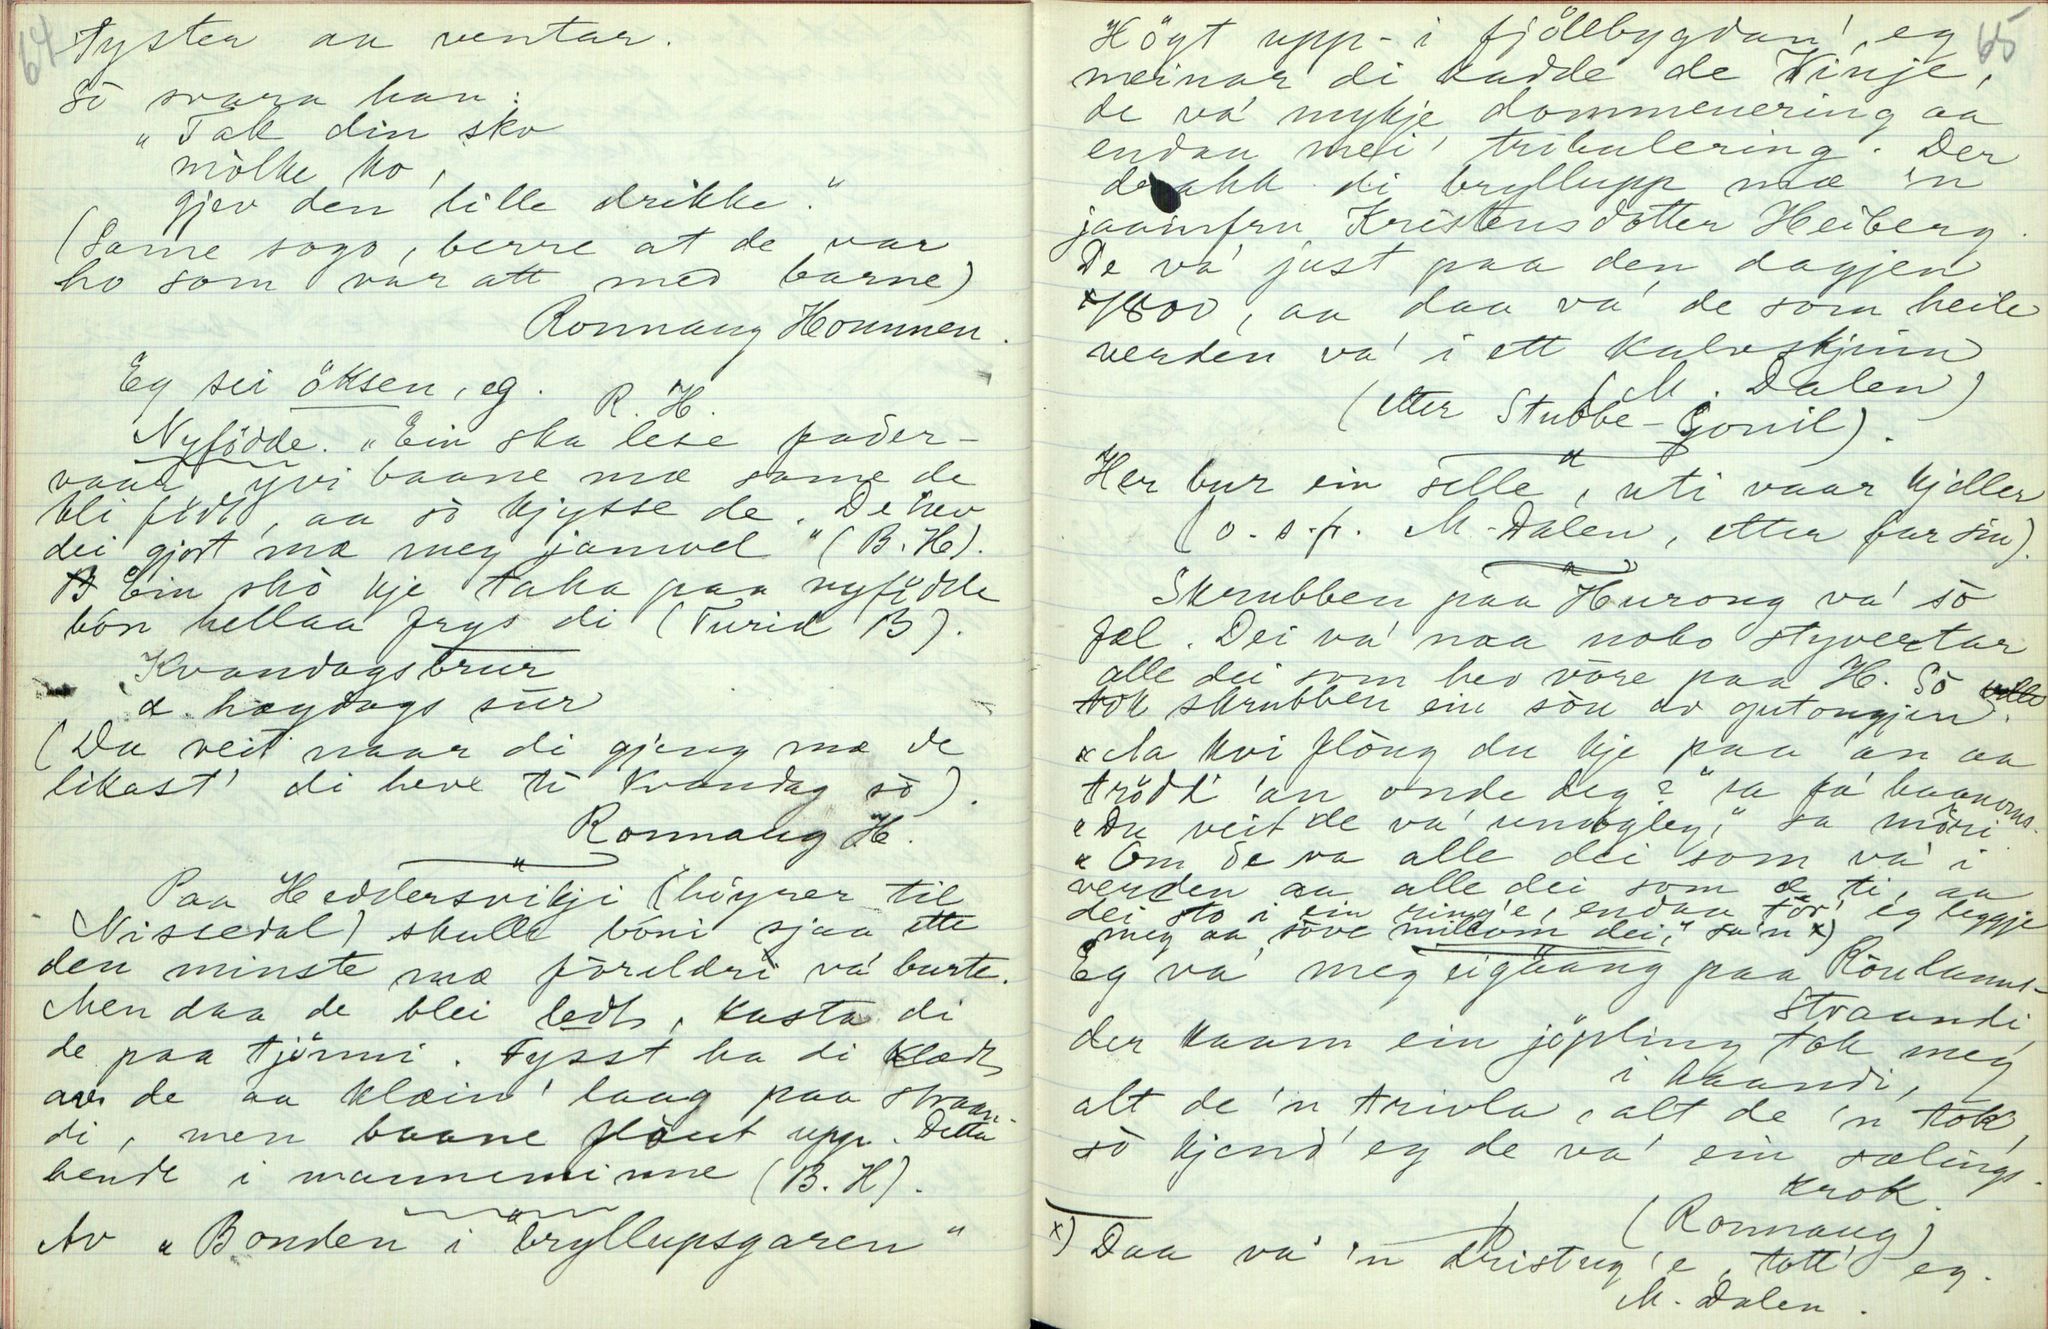 64
Tysten aa ventar.
Sò svara han:
"Tak din sko
mòlke ko,
gjev den lille drikke."
(Same sogo, berre at de var
ho som var att med barne)
Ronnaug Hommen.
Eg sei öksen, eg. R. H.
Nyfödde. "Ein ska lese fader-
vaar yvi baane mæ same de
bli födt, aa sò kjysse de. De hev
dei gjort mæ meg jamvel" (B. H).
Ein skò kje taka paa nyfödde
bón hellaa frys di (Turid B).
Kvandagsbrur
æ haydags sur
(Du veit naar di gjeng mæ de
likast' di heve ti Kvandag sò).
Ronnaug H.
Paa Heddersvikji (höyrer til
Nissedal) skulle bóni sjaa ette
den minste mæ foreldri va' burte.
Men daa de blei ledt, kasta di
de paa tjönni. Fysst ha di klædt
av de aa klæin' laag paa straan-
di, men baane flòut upp. Detta
hende i manneminne (B. H).
Av "Bonden i bryllupsgaren"
65
Högt upp- i fjöllbygdan' eg
meinar di kadde de Vinje,
de va' mykje dommenering aa
endaa mei' tribulering. Der
drakk di bryllupp mæ 'n
jaamfru Kristensdotter Heiberg.
De va' just paa den dagjen
1800, aa daa va' de som heile
verden va' i ett kalvskjinn
(M. Dalen)
(etter Stubbe-Gonil).
Her bur ein selle, uti vaar kjeller
(o. s. fr. M. Dalen, etter far sin).
Skrubben paa Hurong va' sò
fæl. Dei va' naa noko styvertar
alle dei som hev vòre paa H. Sò
tok skrubben ein sòu av gutongjen.
"Aa kvi flòug du kje paa 'an aa
trödd' 'an onde deg?" sa få' baanoms.
"Du veit de va' umògleg," sa mòri
"Om de va alle dei som va' i
verden aa alle dei som æ ti, aa
dei sto i ein ring'e, endaa tör' eg leggje
meg aa sòve millom dei," sa'n x)
Eg va' meg eigaang paa Ròulams-
straandi,
der kaam ein jöpling tok meg
i haandi,
alt de 'n trivla, alt de 'n tok,
sò kjend' eg de va' ein sælings-
krok.
(Ronnaug)
x) Daa va' 'n dristug'e, tott' eg.
M. Dalen.